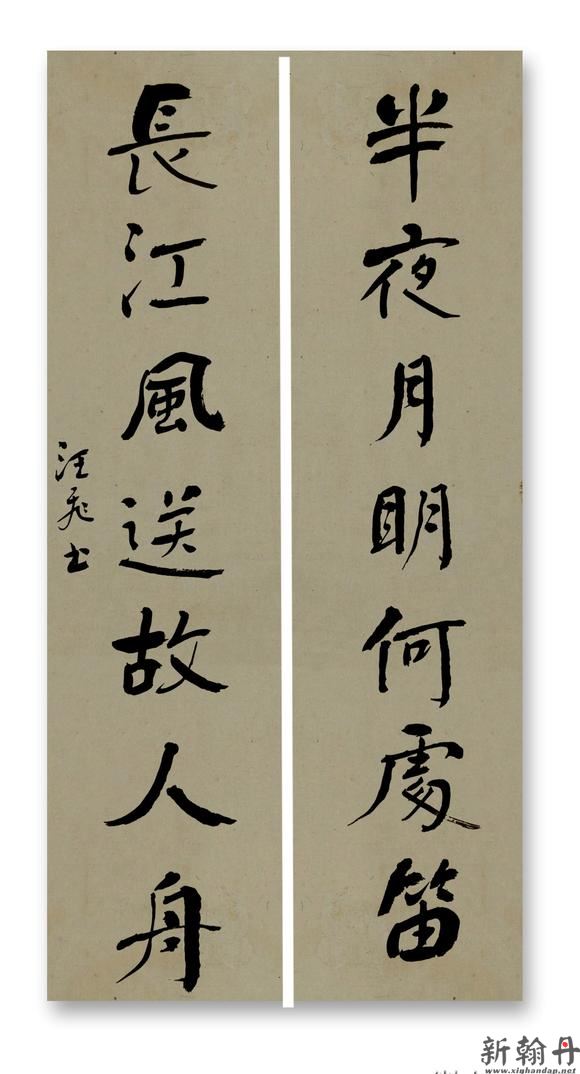 半夜月明何處笛
長江風送故人舟
汪飛书
新翰丹
www.xighandap.net